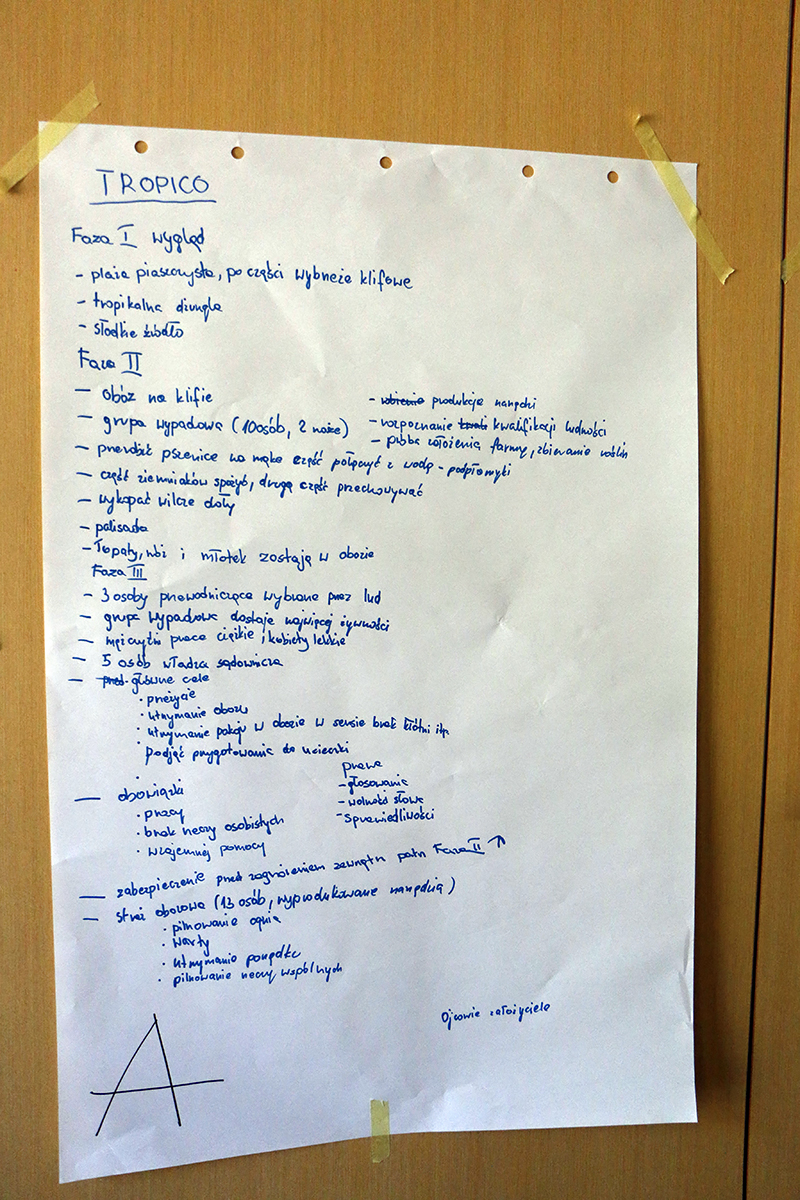 TROPICO
Faza I wygląd
- plaża piaszczysta, po części wybrzeże klifowe
- tropikalna dżungla
- słodkie źródło
Faza II
- obóz na klifie
- grupa wypadowa (10 osób, 2 noże)
- przerobić pszenice na mąkę część połączyć z wodą - podpłomyki
- część ziemniaków spożyć, drugą część przechowywać
- wykopać wilcze doły
- palisada
- Łopaty, i młotek zostają w obozie
- zbieranie produkcja narzędzi
- rozpoznanie kwalifikacji ludności
- próba założenia farmy, zbieranie roślin
Faza III
- 3 osoby przewodniczące wybrane przez lud
- grupa wypadowa dostaje najwięcej żywności
- mężczyźni prace ciężkie, kobiety lekkie
- 5 osób władza sądownicza
- główne cele
· przeżycie
· utrzymanie obozu
· utrzymanie pokoju w obozie w sensie brak kłótni itp.
· Podjąć przygotowania do ucieczki
- obowiązki
· pracy
· brak rzeczy osobistych
· wzajemnej pomocy
prawa
- głosowania
- wolność słowa
- sprawiedliwości
- zabezpieczenie przed zagrożeniem zewnątrz patrz Faza II ↑
- straż obozowa (13 osób, wyprodukowane narzędzia)
· pilnowanie ognia
· warty
· utrzymanie porządku
· pilnowanie rzeczy wspólnych
Ojcowie założyciele
A